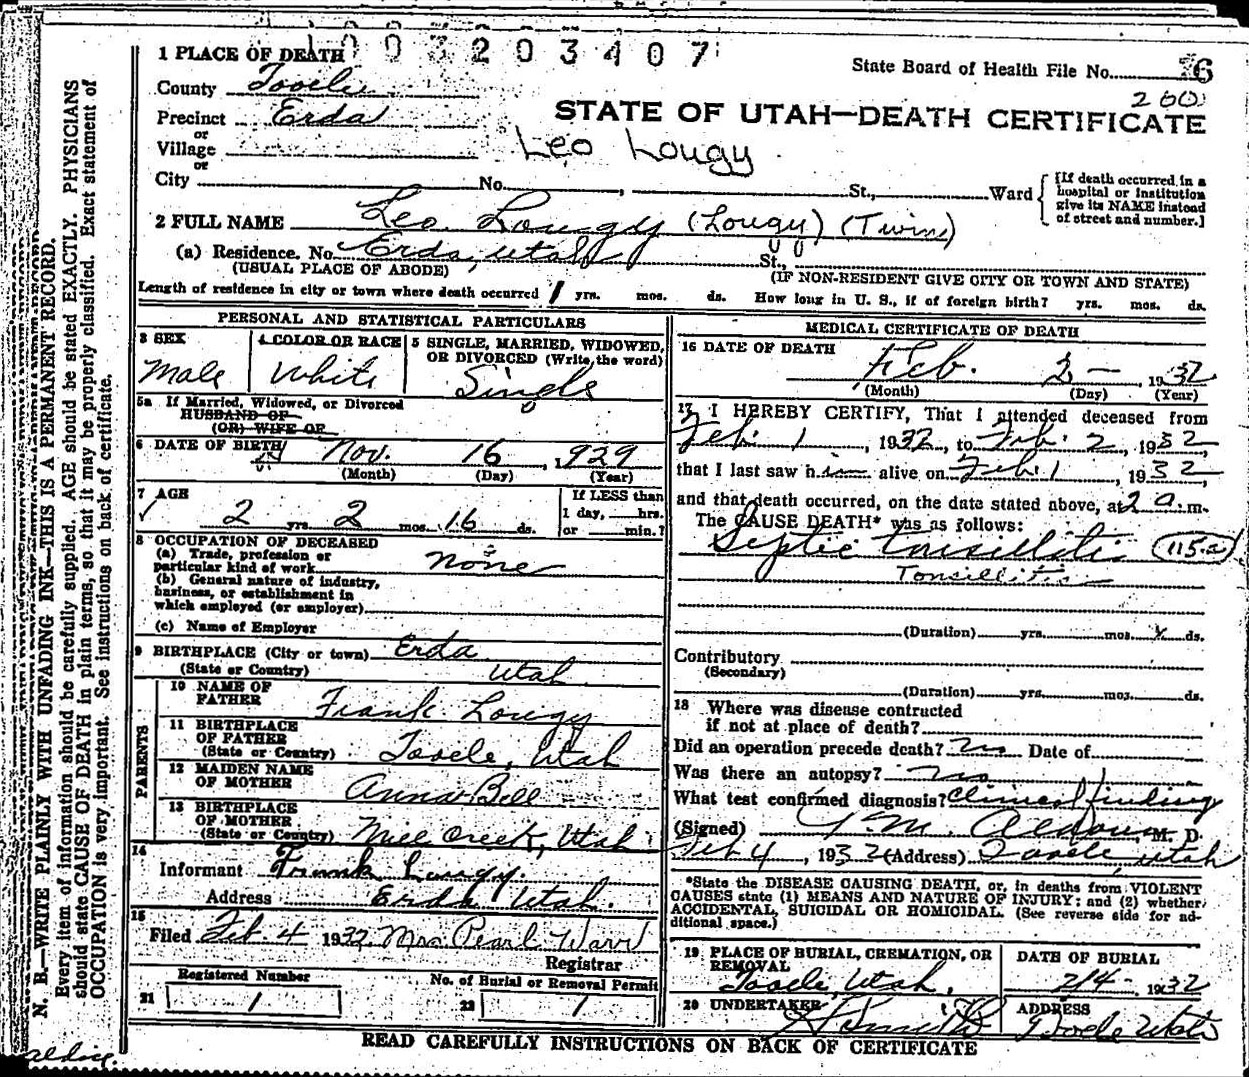 1003203407
1 PLACE OF DEATH
State Board of Health File No. 26
County Tooele
260
Precinct Erda
STATE OF UTAH—DEATH CERTIFICATE
or
Village
Leo Lougy
or
City No. , St., Ward
[If death occurred in a hospital or institution give its NAME instead of street and number.]
2 FULL NAME Leo Lougy (Lougy) (Twin)
(a) Residence. No. Erda, Utah St.,
(USUAL PLACE OF ABODE) (IF NON-RESIDENT GIVE CITY OR TOWN AND STATE)
Length of residence in city or town where death occurred 1 yrs. mos. ds. How long in U. S., if of foreign birth? yrs. mos. ds.
PERSONAL AND STATISTICAL PARTICULARS
3 SEX
Male
4 COLOR OR RACE
White
5 SINGLE, MARRIED, WIDOWED,
OR DIVORCED (Write the word)
Single
5a If Married, Widowed, or Divorced
HUSBAND OF
(OR) WIFE OF
6 DATE OF BIRTH Nov. 16, 1929
(Month) (Day) (Year)
7 AGE
2 yrs. 2 mos. 16 ds.
If LESS than
1 day, hrs.
or min.?
8 OCCUPATION OF DECEASED
(a) Trade, profession or
particular kind of work none
(b) General nature of industry,
business, or establishment in
which employed (or employer)
(c) Name of Employer
9 BIRTHPLACE (City or town) Erda
(State or Country) Utah
PARENTS
10 NAME OF
FATHER Frank Lougy
11 BIRTHPLACE
OF FATHER
(State or Country) Tooele, Utah
12 MAIDEN NAME
OF MOTHER Anna Bell
13 BIRTHPLACE
OF MOTHER
(State or Country) Mill Creek, Utah
14
Informant Frank Lougy.
Address Erda Utah.
15
Filed Feb. 4 1932. Mrs. Pearl Warr
Registrar
Registered Number
21 1
No. of Burial or Removal Permit
22 1
MEDICAL CERTIFICATE OF DEATH
16 DATE OF DEATH
Feb. 2 , 1932
(Month) (Day) (Year)
17 I HEREBY CERTIFY, That I attended deceased from
Feb. 1 , 1932, to Feb. 2, 1932
that I last saw him alive on Feb. 1 , 1932,
and that death occurred, on the date stated above, at 2 a. m.
The CAUSE DEATH* was as follows:
Septic tonsillitis (115-a)
Tonsillitis
(Duration) yrs. mos. 4 ds.
Contributory
(Secondary)
(Duration) yrs. mos. ds.
18 Where was disease contracted
if not at place of death?
Did an operation precede death? No Date of
Was there an autopsy? No
What test confirmed diagnosis? Clinical finding
(Signed) M. D.
Feb 4, 1932 (Address) Tooele, Utah
*State the DISEASE CAUSING DEATH, or, in deaths from VIOLENT
CAUSES state (1) MEANS AND NATURE OF INJURY; and (2) whether
ACCIDENTAL, SUICIDAL OR HOMICIDAL. (See reverse side for ad-
ditional space.)
19 PLACE OF BURIAL, CREMATION, OR
REMOVAL
Tooele, Utah.
DATE OF BURIAL
2/4- 1932
20 UNDERTAKER
ADDRESS
Tooele Utah
READ CAREFULLY INSTRUCTIONS ON BACK OF CERTIFICATE
N. B.—WRITE PLAINLY WITH UNFADING INK—THIS IS A PERMANENT RECORD.
Every item of information should be carefully supplied. AGE should be stated EXACTLY. PHYSICIANS
should state CAUSE OF DEATH in plain terms, so that it may be properly classified. Exact statement of
OCCUPATION is very important. See instructions on back of certificate.